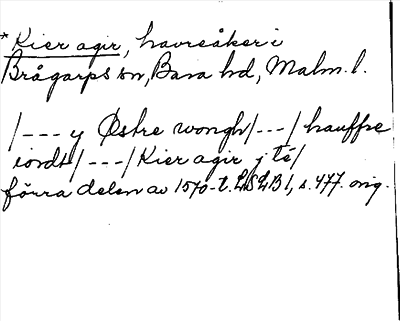 *Kier agir, havreåker i
Brågarps sn, Bara hd, Malm. l.
/--- y Østre wongh /---/ hauffre
iordt /---/ Kier agir j té/
förra delen av 1570-t. LSLB1, s. 477. orig.